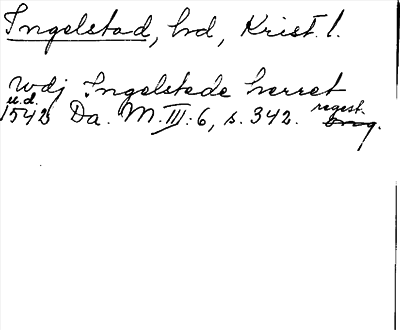 Ingelstad, hd, Krist. l.
wdj Ingelstede herret
u.d.
1542 Da. M. III: 6, s. 342. regest.